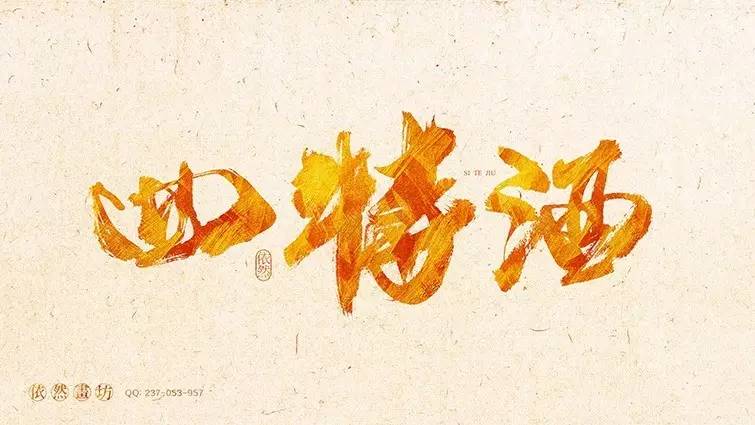 四特酒
SI TE JIU
依然
依然畫坊 QQ: 237-053-957